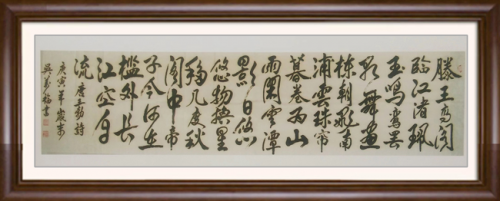 滕王高阁
臨江渚珮
玉鳴鸞罷
歌舞畫
棟朝飛南
浦雲珠帘
暮卷西山
雨閑雲潭
影日悠
悠物換星
移几度秋
阁中帝
子今何在
檻外長
江空自
流 唐王勃詩
庚寅年歲
書